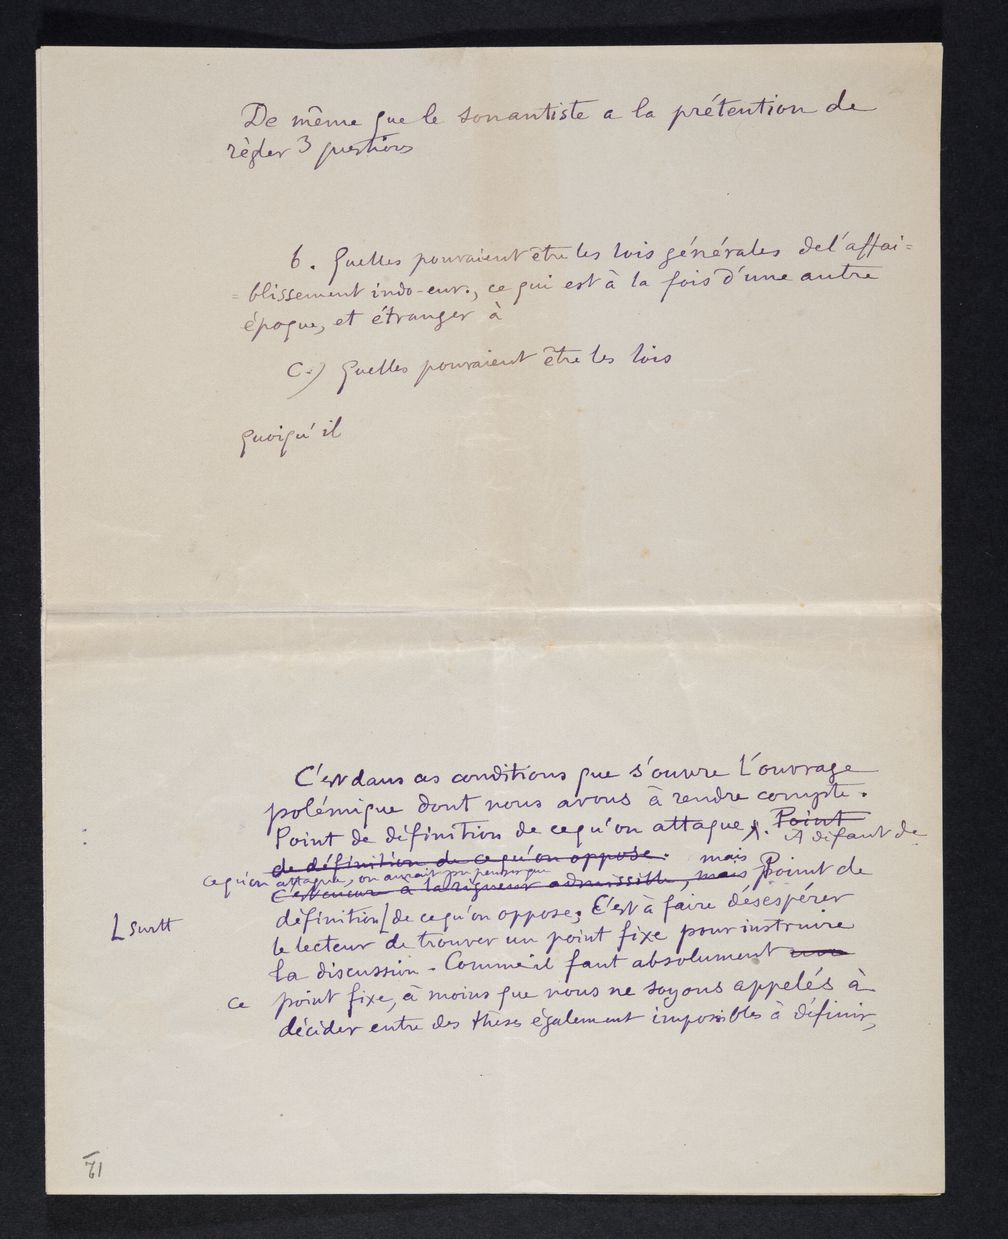 De même que le sonantiste a la prétention de
règler 3 questions
b. Quelles pouvaient être les lois générales de l'affai=
=blissement indo-eur., ce qui est à la fois d'une autre
époque, et étranger à
c.) Quelles pouvaient être les lois
Quoiqu'il
C'est dans ces conditions que s'ouvre l'ouvrage
polémique dont nous avons à rendre compte.
Point de définition de ce qu'on attaque. Point
et défaut de
de définition de ce qu'on oppose. mais
ce qu'on attaque, on aurait pu penser que
C'est encore à la rigueur admissible, mais Point de
définition [de ce qu'on oppose; C'est à faire désespérer
L surtt
le lecteur de trouver un point fixe pour instruire
la discussion. Comme il faut absolument une
ce point fixe, à moins que nous ne soyons appelés à
décider entre des thèses également impossibles à définir,
71